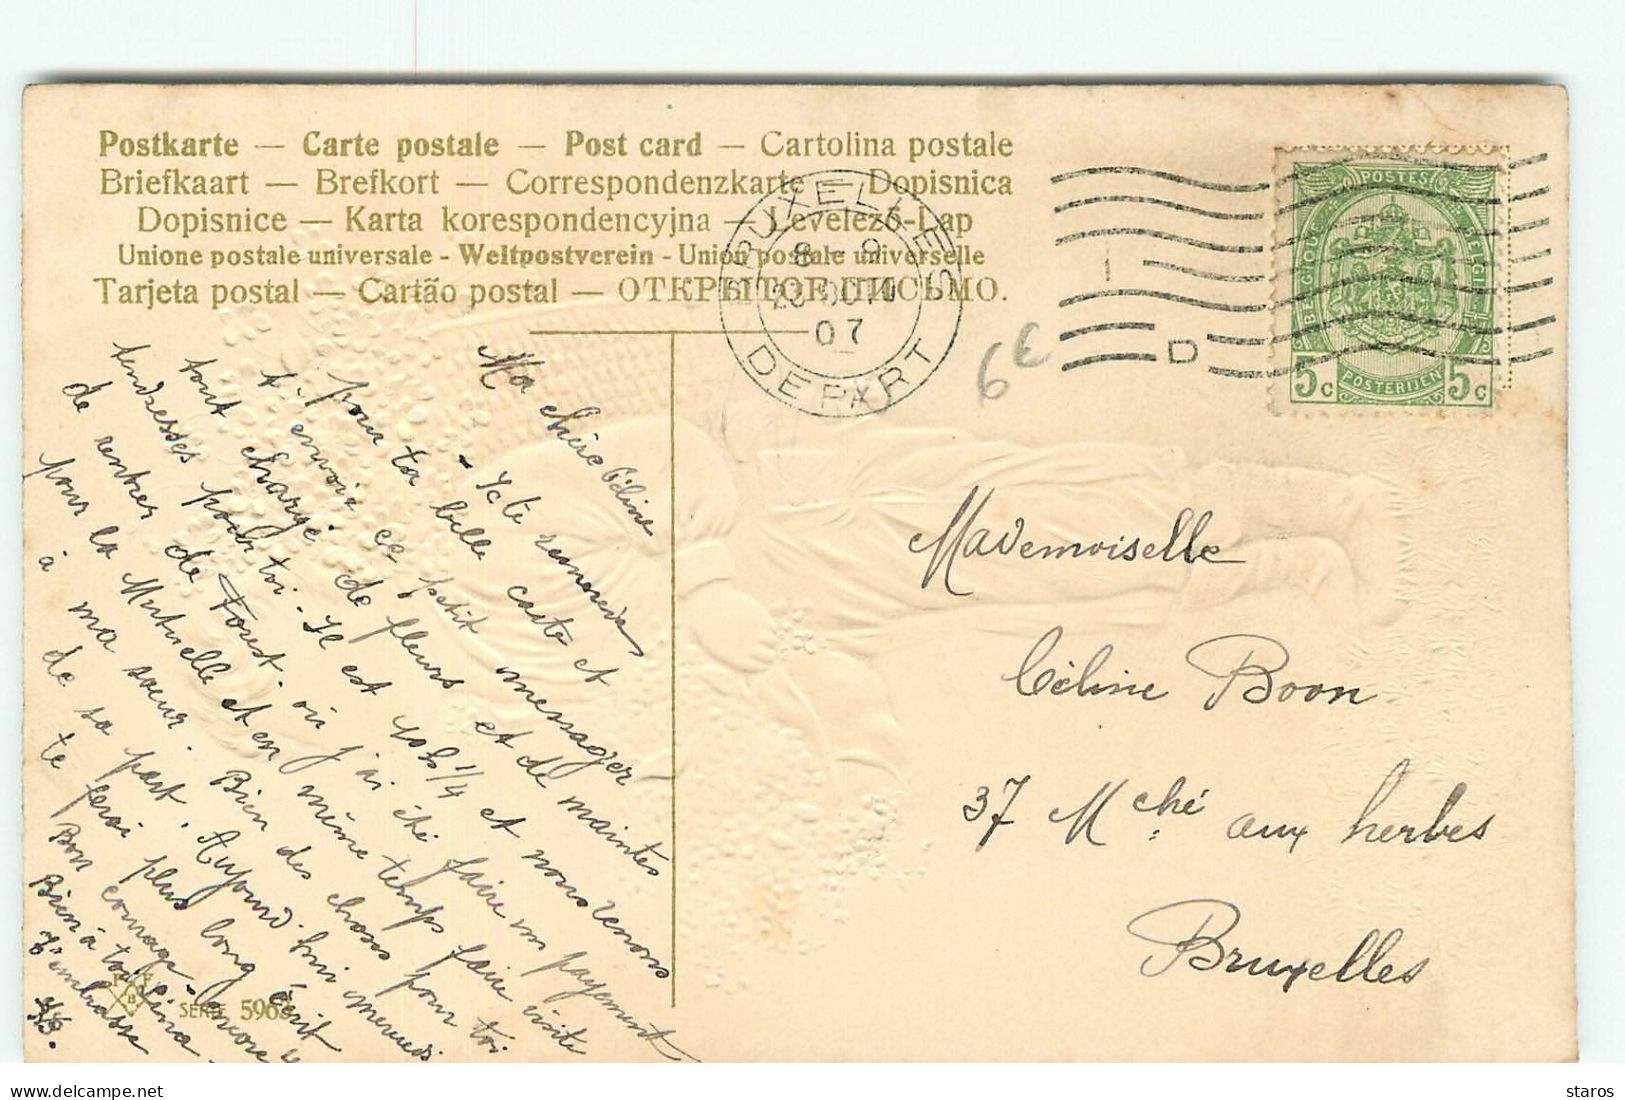 Postkarte — Carte postale — Post card — Cartolina postale
Briefkaart — Brefkort — Correspondenzkarte — Dopisnica
Dopisnice — Karta korespondencyjna — Levelező-Lap
Unione postale universale - Weltpostverein - Unión postale universelle
Tarjeta postal — Cartão postal — ОТКРЫТОЕ ПИСЬМО.
BRUXELLES
8 - 9
07
DEPART
D
POSTES
BELGIQUE
BELGIË
5c POSTERIJEN 5c
6€
Ma chère Céline
- Je te remercie
pour ta belle carte et
t'envoie ce petit messager
tout chargé de fleurs et de maintes
tendresses pour toi. Il est 10h 1/4 et nous venons
de rentrer de Forest où j'ai été faire un payement
pour la Mutuelle et en même temps faire visite
à ma sœur. Bien des choses pour toi
de sa part. Aujourd'hui
te ferai plus long écrit
Bon courage encore
Bien à toi Lina
t'embrasse
SERIE 5963
Mademoiselle
Céline Boon
37 Mché aux herbes
Bruxelles
staros
delcampe.net